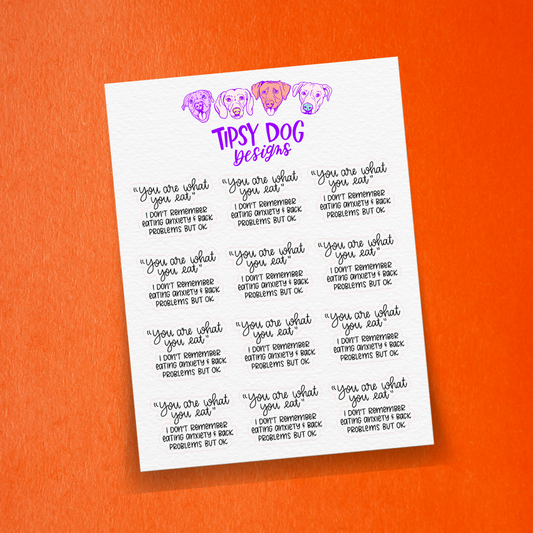 TIPSY DOG
Designs
"You are what
you eat"
I DON'T REMEMBER
eating anxiety & BACK
PROBLEMS BUT OK
"You are what
you eat"
I DON'T REMEMBER
eating anxiety & BACK
PROBLEMS BUT OK
"You are what
you eat"
I DON'T REMEMBER
eating anxiety & BACK
PROBLEMS BUT OK
"You are what
you eat"
I DON'T REMEMBER
eating anxiety & BACK
PROBLEMS BUT OK
"You are what
you eat"
I DON'T REMEMBER
eating anxiety & BACK
PROBLEMS BUT OK
"You are what
you eat"
I DON'T REMEMBER
eating anxiety & BACK
PROBLEMS BUT OK
"You are what
you eat"
I DON'T REMEMBER
eating anxiety & BACK
PROBLEMS BUT OK
"You are what
you eat"
I DON'T REMEMBER
eating anxiety & BACK
PROBLEMS BUT OK
"You are what
you eat"
I DON'T REMEMBER
eating anxiety & BACK
PROBLEMS BUT OK
"You are what
you eat"
I DON'T REMEMBER
eating anxiety & BACK
PROBLEMS BUT OK
"You are what
you eat"
I DON'T REMEMBER
eating anxiety & BACK
PROBLEMS BUT OK
"You are what
you eat"
I DON'T REMEMBER
eating anxiety & BACK
PROBLEMS BUT OK